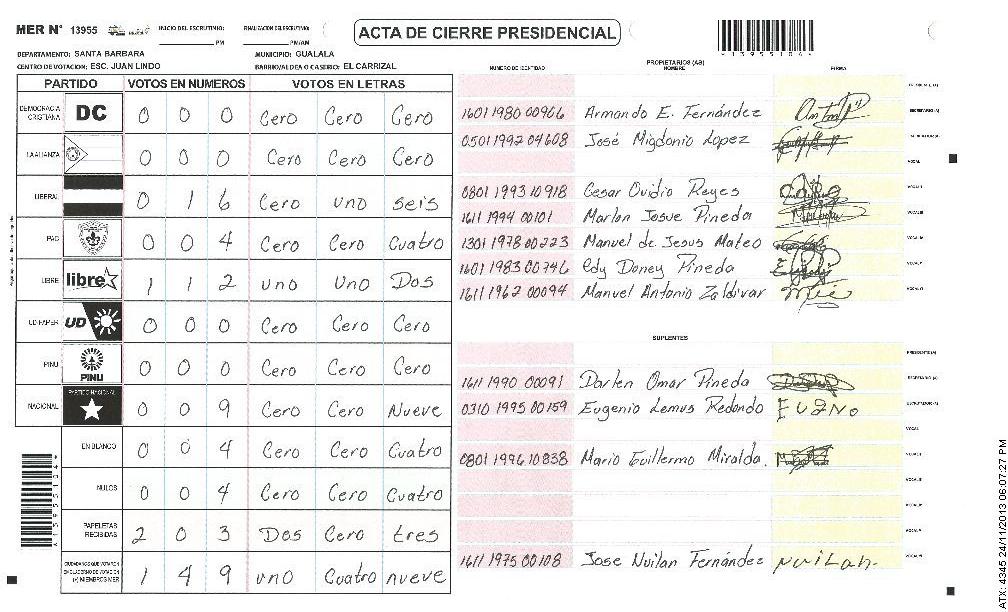 MER N° 13955 INICIO DEL ESCRUTINIO: PM FINALIZACION DEL ESCRUTINIO: PM/AM
ACTA DE CIERRE PRESIDENCIAL
DEPARTAMENTO: SANTA BARBARA MUNICIPIO: GUALALA
CENTRO DE VOTACION: ESC. JUAN LINDO BARRIO/ALDEA O CASERIO: EL CARRIZAL
PARTIDO VOTOS EN NUMEROS VOTOS EN LETRAS
DEMOCRACIA CRISTIANA DC 0 0 0 Cero Cero Cero
LA ALIANZA 0 0 0 Cero Cero Cero
LIBERAL 0 1 6 Cero uno seis
PAC 0 0 4 Cero Cero Cuatro
LIBRE libre 1 1 2 uno Uno Dos
UD-FAPER UD 0 0 0 Cero Cero Cero
PINU PINU 0 0 0 Cero Cero Cero
NACIONAL PARTIDO NACIONAL 0 0 9 Cero Cero Nueve
EN BLANCO 0 0 4 Cero Cero Cuatro
NULOS 0 0 4 Cero Cero Cuatro
PAPELETAS RECIBIDAS 2 0 3 Dos Cero tres
CIUDADANOS QUE VOTARON EN EL CUADERNO DE VOTACION (+) MIEMBROS MER 1 4 9 uno Cuatro nueve
PROPIETARIOS (AS)
NUMERO DE IDENTIDAD NOMBRE FIRMA
1601 1980 00966 Armando E. Fernández SECRETARIO(A)
0501 1992 04608 José Migdonio Lopez
VOCAL
0801 1993 10918 Cesar Ovidio Reyes
1611 1994 00101 Marlon Josue Pineda
1301 1978 00223 Manuel de Jesus Mateo
1601 1983 00746 Edy Doney Pineda
1611 1962 00094 Manuel Antonio Zaldivar
SUPLENTES
PRESIDENTE (A)
1611 1990 00091 Darlen Omar Pineda SECRETARIO (A)
0310 1995 00159 Eugenio Lemus Redondo ESCRUTADOR(A)
VOCAL
0801 1996 10838 Mario Guillermo Miralda.
1611 1975 00108 Jose Nuilan Fernández nuilan
ATX: 4345 24/11/2013 06:07:27 PM